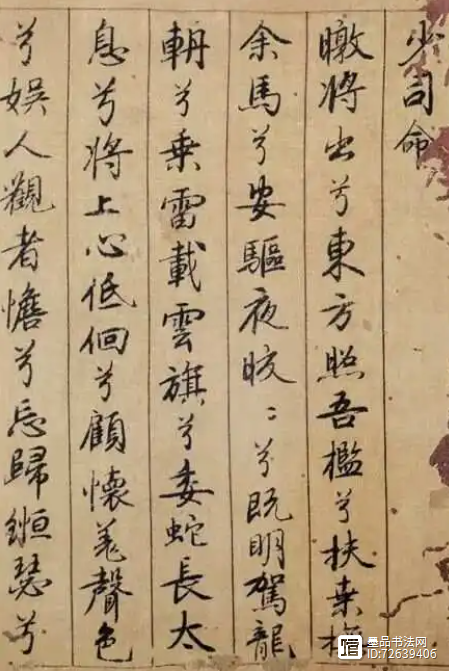 少司命
暾將出兮東方照吾檻兮扶桑撫
余馬兮安驅夜皎〻兮既明駕龍
輈兮乘雷載雲旗兮委蛇長太
息兮將上心低佪兮顧懷羌聲色
兮娛人觀者憺兮忘歸緪瑟兮
墨品书法网
ID:72639406